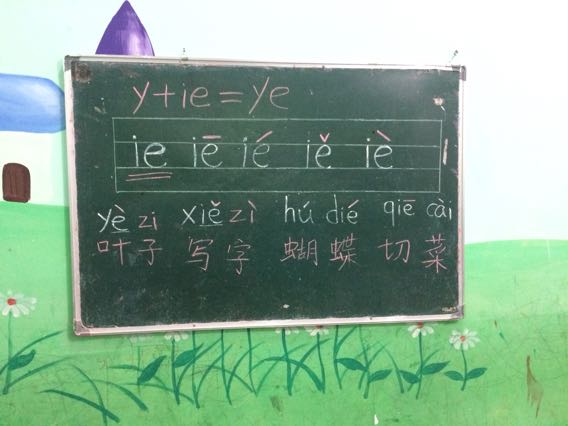 y+ie=ye
ie iē ié iě iè
yè zi xiě zì hú dié qiē cài
叶子 写字 蝴蝶 切菜